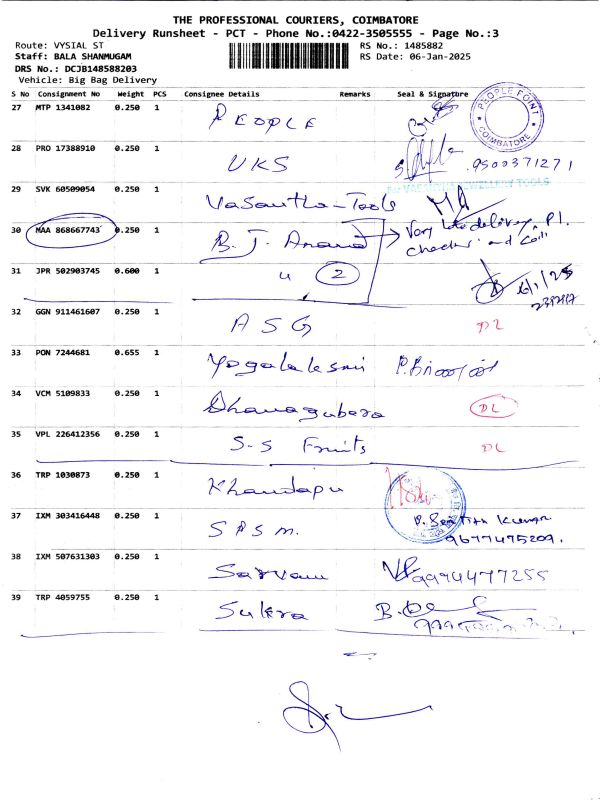 THE PROFESSIONAL COURIERS, COIMBATORE
Delivery Runsheet - PCT - Phone No.:0422-3505555 - Page No.:3
Route: VYSIAL ST RS No.: 1485882
Staff: BALA SHANMUGAM RS Date: 06-Jan-2025
DRS No.: DCJB148588203
Vehicle: Big Bag Delivery
S No Consignment No Weight PCS Consignee Details Remarks Seal & Signature
27 MTP 1341082 0.250 1 PEOPLE PEOPLE POINT COIMBATORE
28 PRO 17388910 0.250 1 UKS 9500371271
29 SVK 60509054 0.250 1 Vasantha-Tools
30 MAA 868667743 0.250 1 B.J. Anand Very late delivery, Pl.
check and Call
31 JPR 502903745 0.600 1 " 2 6/1/25
32 GGN 911461607 0.250 1 ASG DL
33 PON 7244681 0.655 1 Yogalakshmi
34 VCM 5109833 0.250 1 Dhanagubera DL
35 VPL 226412356 0.250 1 S-S Fruits DL
36 TRP 1030873 0.250 1
37 IXM 303416448 0.250 1 SPSM. Kumar
9677475209.
38 IXM 507631303 0.250 1 Sarvam 9994477255
39 TRP 4059755 0.250 1 Sukra